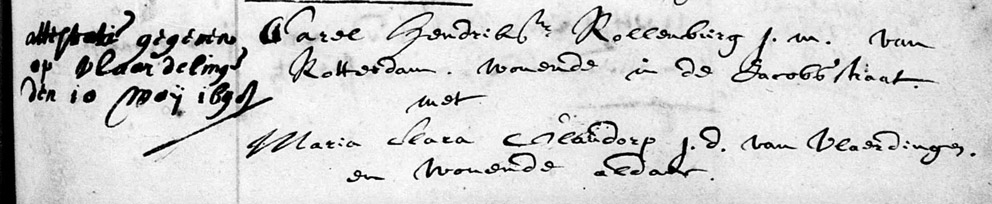 attestatie gegeven
op Vlaerdeling
den 10 Meij
Carel Hendriksz Rollenburg j. m. van
Rotterdam. wonende in de Jacobstraat.
met
Maria Clara j. d. van Vlaerdingen.
en wonende aldaer.